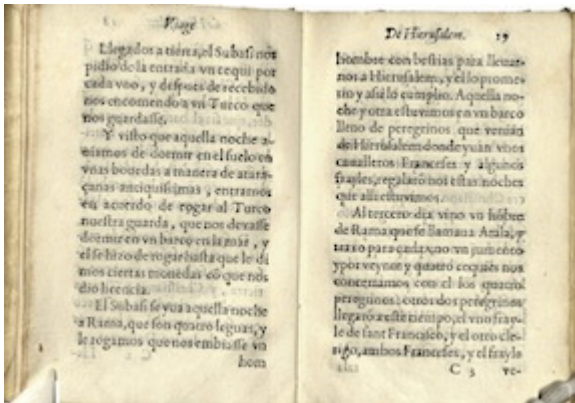 Viage
Llegados a tierra, el Subasi nos
pidio de la entrada vn cequi por
cada vno, y despues de recebido
nos encomendo a vn Turco que
nos guardasse.
Y visto que aquella noche a-
uiamos de dormir en el suelo en
vnas bouedas a manera de atara-
çanas antiquissimas, entramos
en acuerdo de rogar al Turco
nuestra guarda, que nos dexasse
dormir en vn barco en la mar, y
el se hizo de rogar hasta que le di
mos ciertas monedas cō que nos
dio licencia.
El Subasi se vua aquella noche
a Rama, que son quatro leguas, y
le rogamos que nos embiasse vn
hom
De Hierusalem. 19
hombre con bestias para lleuar-
nos a Hierusalem, y el lo prome-
tio y assi lo cumplio. Aquella no-
che y otra estuuimos en vn barco
lleno de peregrinos que venian
de Hierusalem donde yuan vnos
caualleros Franceses y algunos
frayles, regalarō nos estas noches
que alli estuuimos.
Al tercero dia vino vn hōbre
de Rama que se llamaua Atala, y
traxo para cada vno vn jumento
y por veynte y quatro cequies nos
concertamos con el los quatro
peregrinos: otros dos peregrinos
llegarō a este tiempo, el vno fray-
le de sant Francisco, y el otro cle-
rigo, ambos Franceses, y el frayle
C 3 ve-